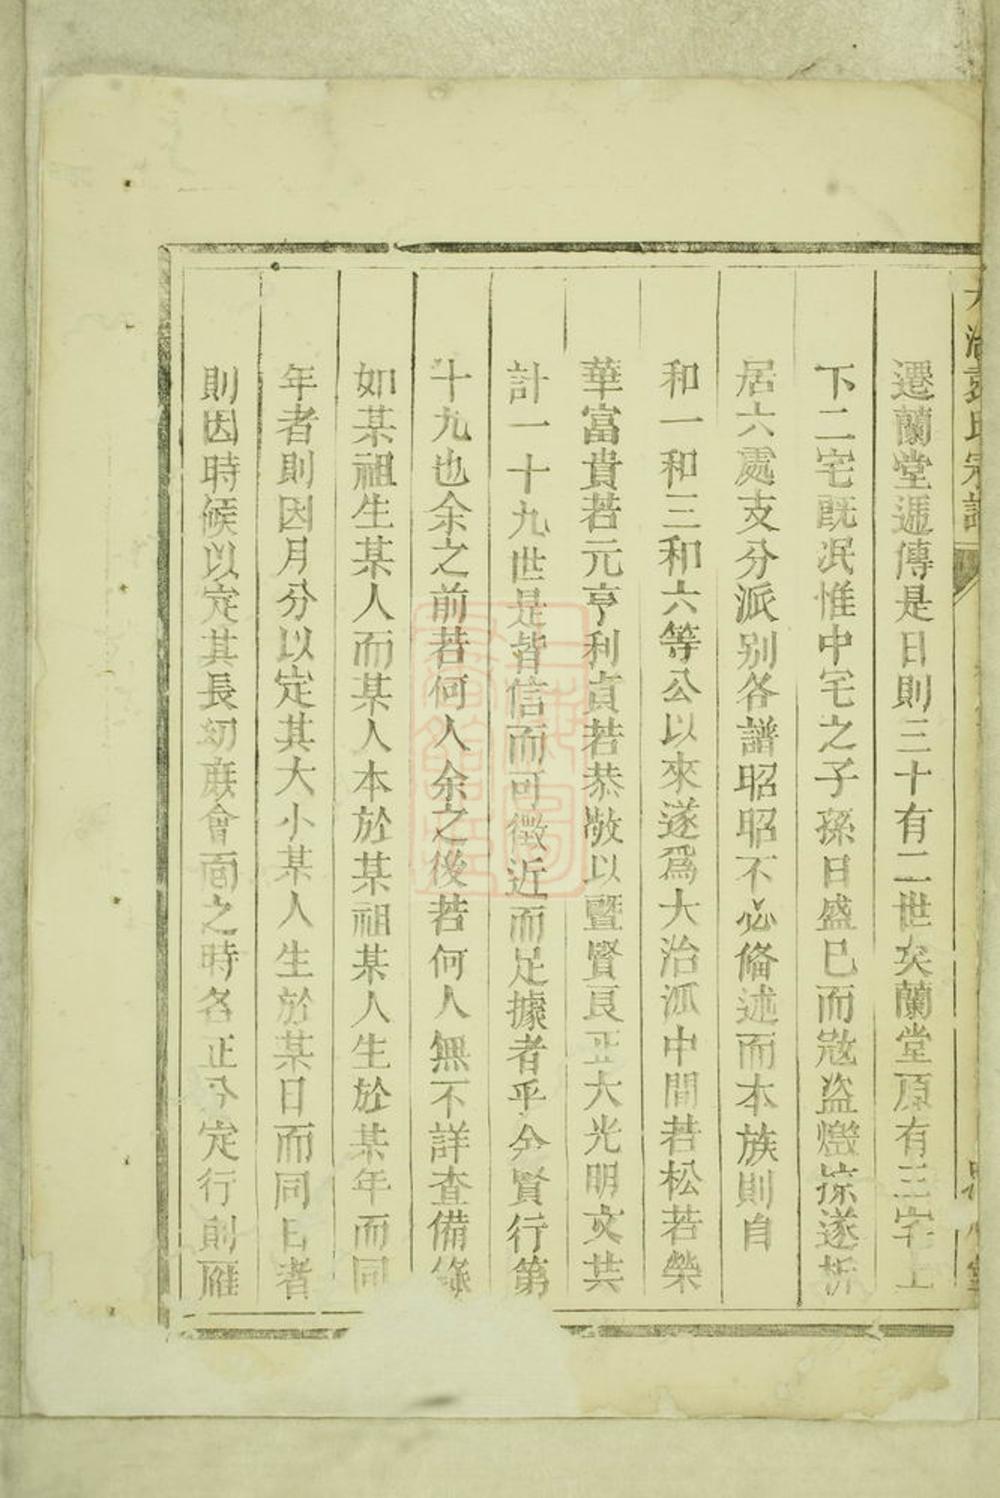 遷蘭堂遞傳是日則三十有二世矣蘭堂原有三宅上
下二宅既冺惟中宅之子孫日盛巳而宼盗燬掠遂析
居六處支分派别各譜昭昭不必偹述而本族則自
和一和三和六等公以來遂爲大冶派中間若松若榮
華富貴若元亨利貞若恭敬以暨賢良正大光明文共
計一十九世是皆信而可徵近而足據者乎今賢行第
十九也余之前若何人余之後若何人無不詳查備錄
如某祖生某人而某人本於某祖某人生於某年而同
年者則因月分以定其大小某人生於某日而同日者
則因時候以定其長幼族會面之時各正分定行則雁